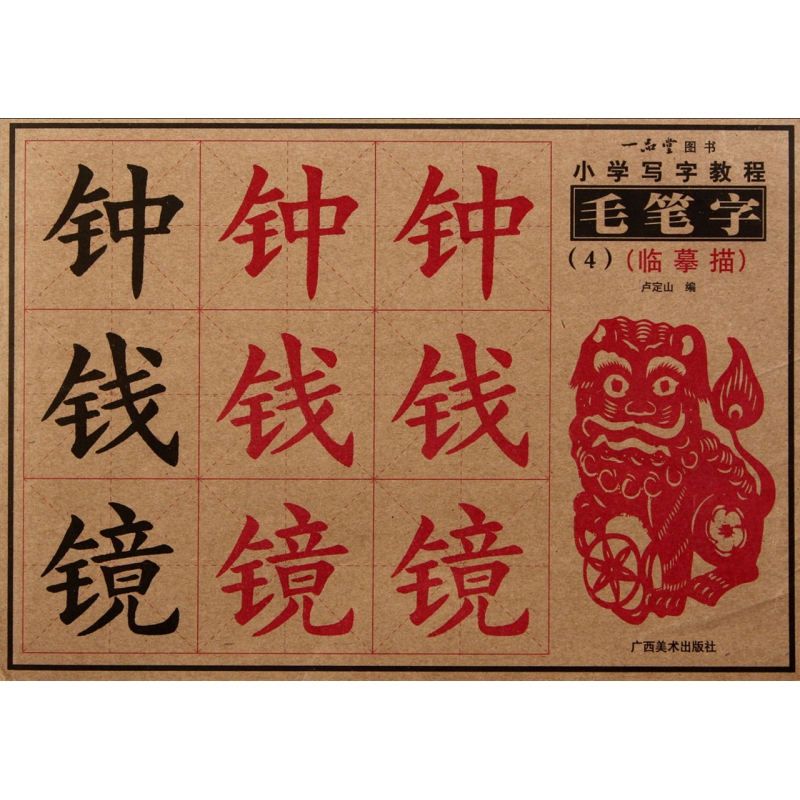 钟 钟 钟
钱 钱 钱
镜 镜 镜
一品堂图书
小学写字教程
毛笔字
(4)(临摹描)
卢定山 编
广西美术出版社